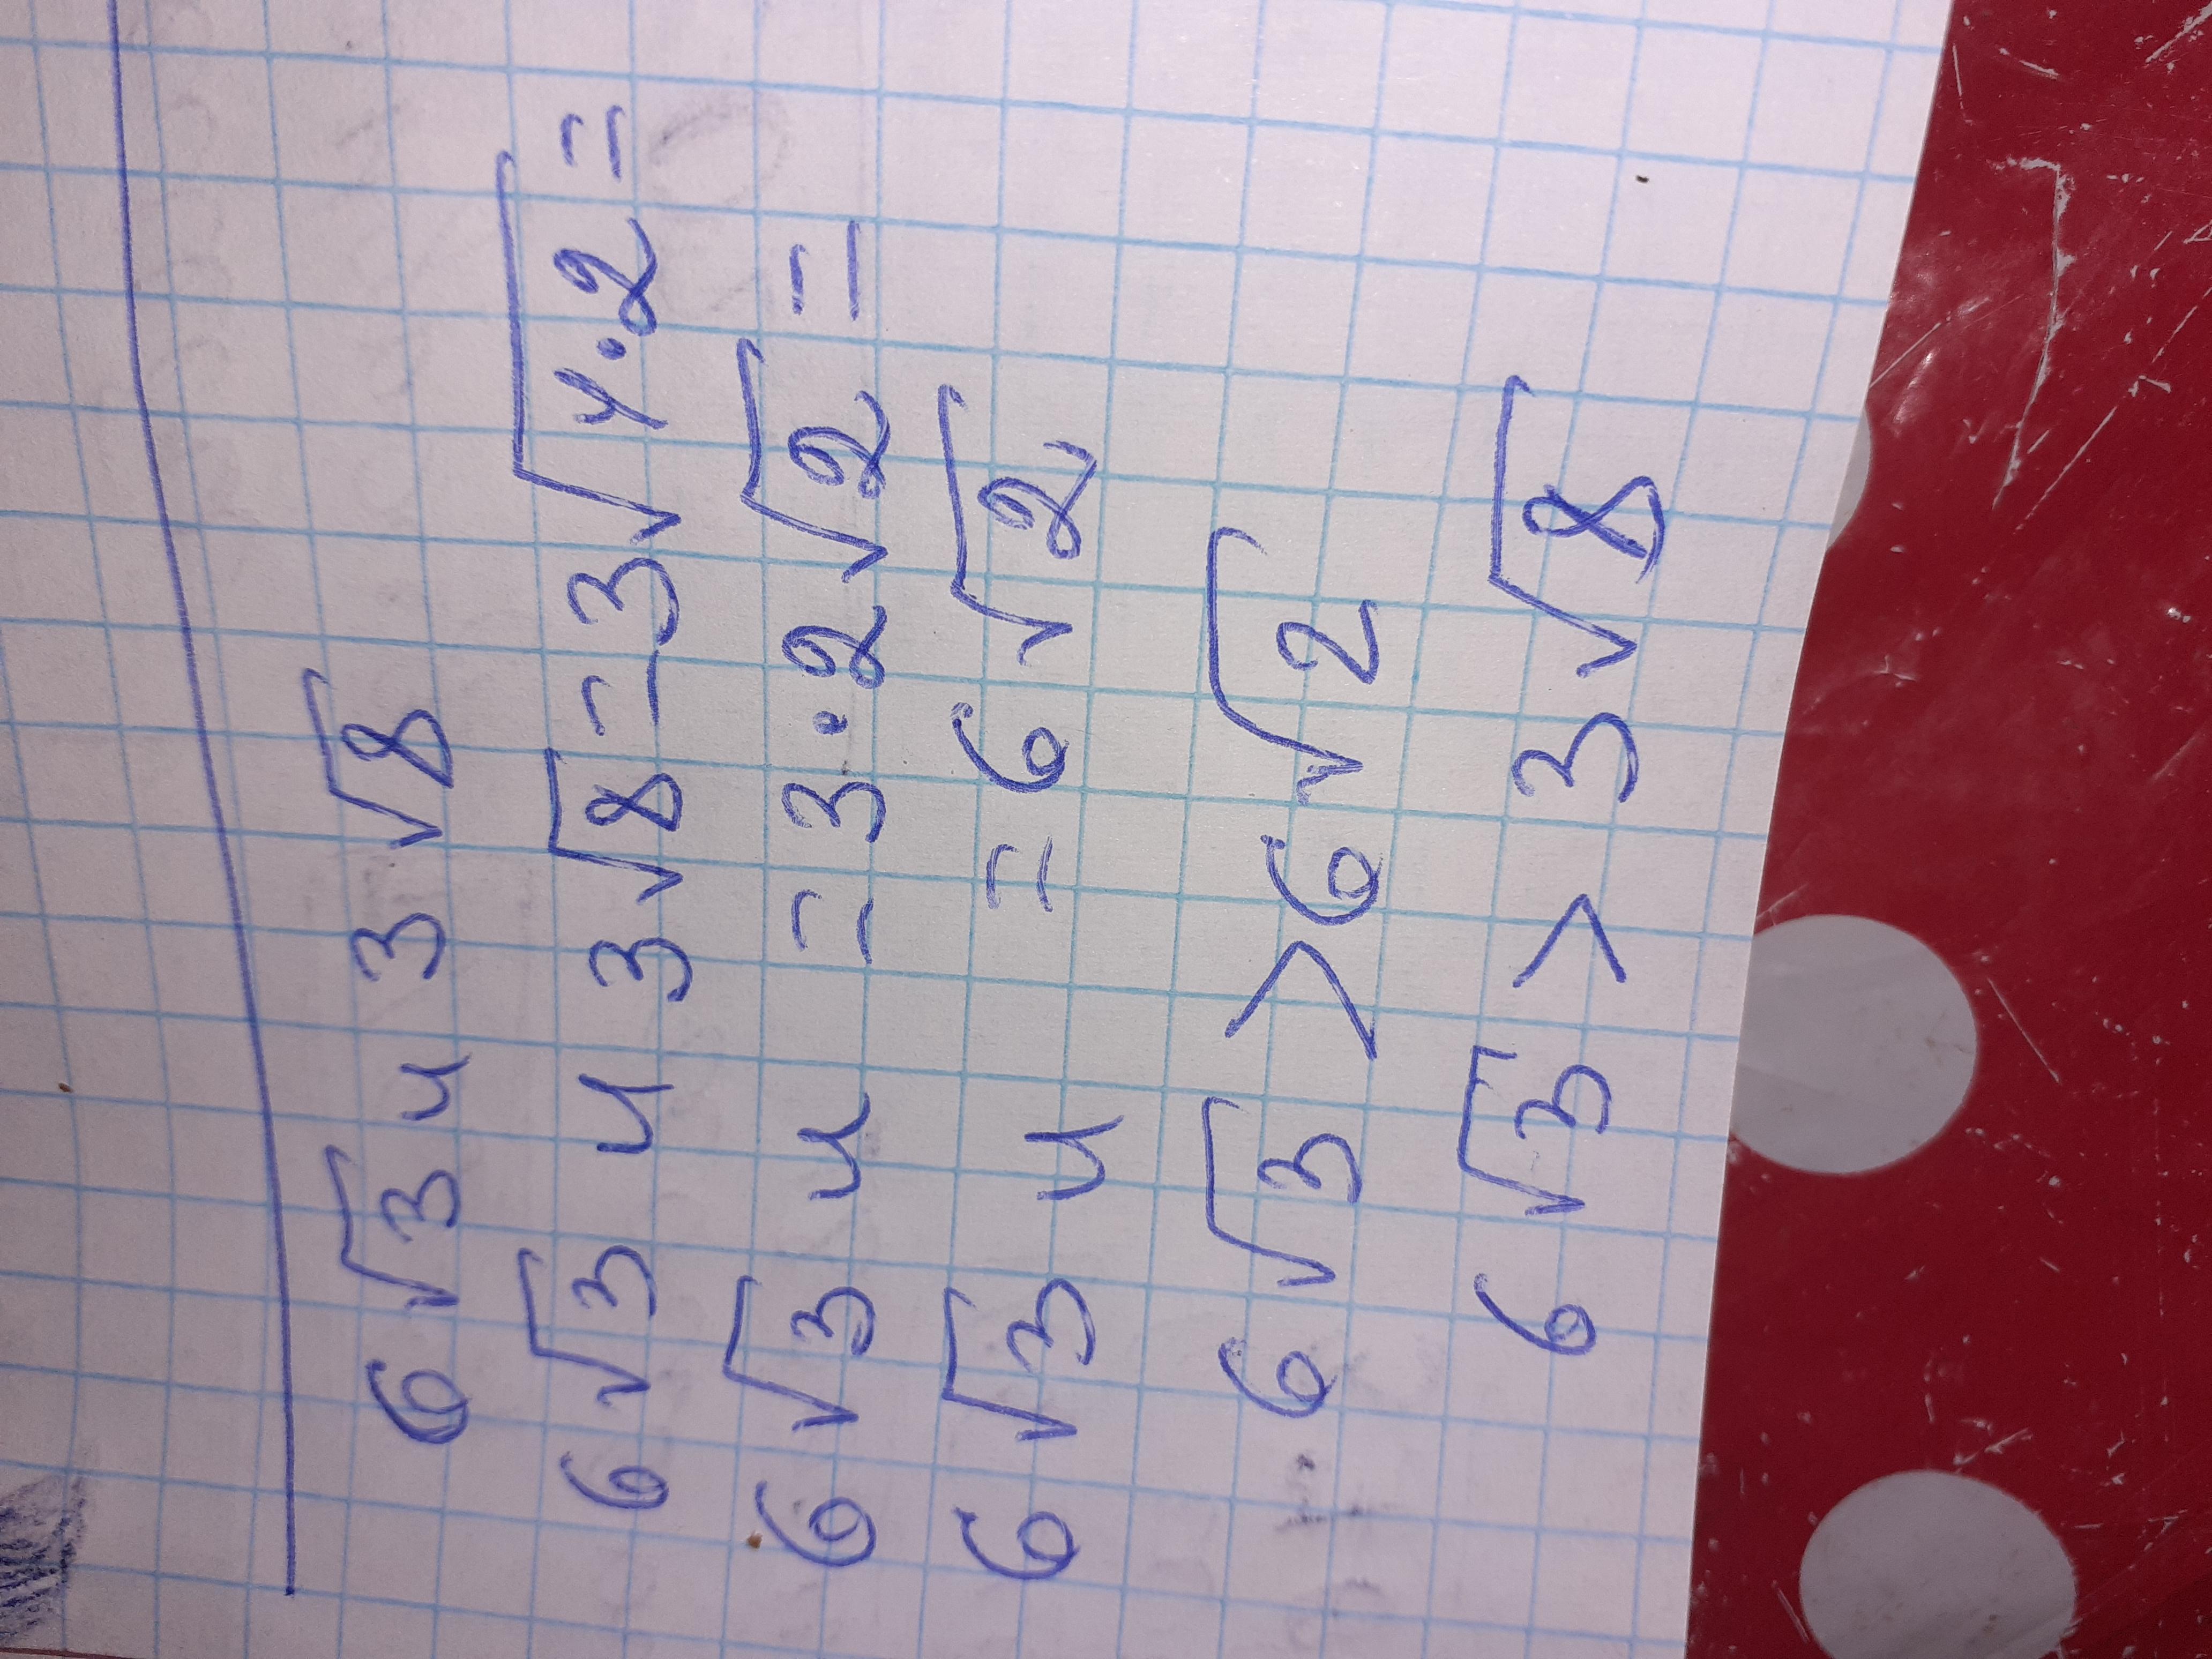 6√3 и 3√8
6√3 и 3√8 = 3√4·2 =
6√3 и = 3·2√2 =
6√3 и = 6√2
6√3 > 6√2
6√3 > 3√8